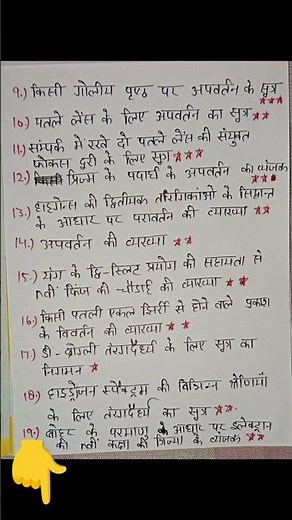 9.) किसी गोलीय पृष्ठ पर अपवर्तन के सूत्र ★★★
10.) पतले लेंस के लिए अपवर्तन का सूत्र ★★
11.) सम्पर्क में रखे दो पतले लेंस की संयुक्त
फोकस दूरी के लिए सूत्र ★★★
12.) प्रिज्म के पदार्थ के अपवर्तन का व्यंजक ★★★
13.) हाइगेन्स की द्वितीयक तरंगिकाओं के सिद्धान्त
के आधार पर परावर्तन की व्याख्या ★★
14.) अपवर्तन की व्याख्या ★★
15.) यंग के द्वि-स्लिट प्रयोग की सहायता से
nवीं फ्रिंज की चौड़ाई की व्याख्या ★★
16.) किसी पतली एकल झिर्री से होने वाले प्रकाश
के विवर्तन की व्याख्या ★★
17.) डी-ब्रोग्ली तरंगदैर्ध्य के लिए सूत्र का
निगमन ★
18.) हाइड्रोजन स्पेक्ट्रम की विभिन्न श्रेणियों
के लिए तंरगदैर्ध्य का सूत्र ★★
19.) बोहर के परमाणु के आधार पर इलेक्ट्रान
की nवीं कक्षा की त्रिज्या के व्यंजक ★★